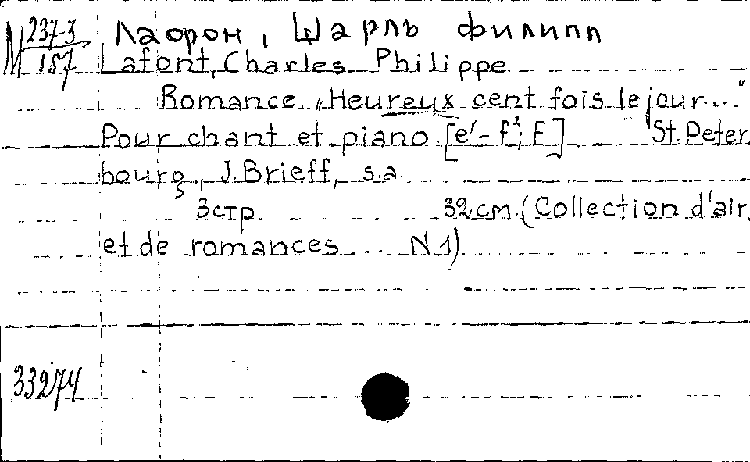 М 237-3 Лафон, Шарль Филипп
157 Lafont, Charles Philippe
Romance „Heureux cent fois le jour..."
Pour chant et piano [e'-f²; F] St. Peter
bourg, J. Brieff, s.a
3стр. 32 см. (Collection d'air
et de romances N 1)
33274